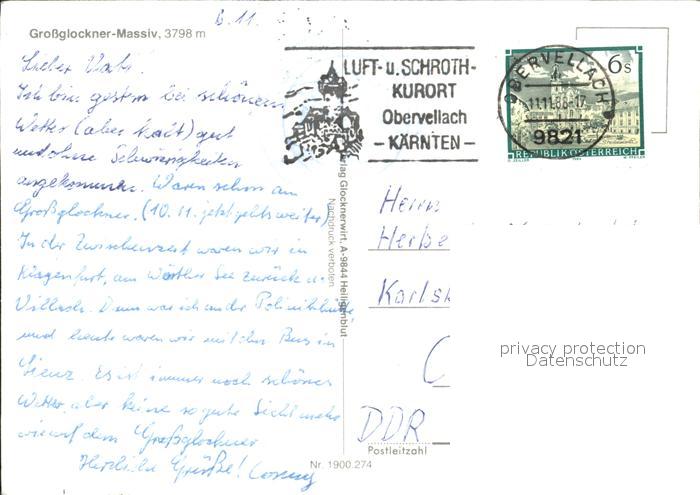 6.11.
Großglockner-Massiv, 3798 m
Lieber Vati.
Ich bin gestern bei schönem
Wetter (aber kalt) gut
und ohne Schwierigkeiten
angekommen. Waren schon am
Großglockner. (10.11. jetzt gehts weiter)
In der Zwischenzeit waren wir in
Klagenfurt, am Wörther See zurück ü.
Villach. Dann war ich an der
und heute waren wir mit dem Bus in
Lienz. Es ist immer noch schönes
Wetter, aber keine so gute Sicht mehr
wie auf dem Großglockner
Herzliche Grüße!
LUFT- u. SCHROTH-
KURORT
Obervellach
- KÄRNTEN -
OBERVELLACH
11.11.88-17
9821
6 S
REPUBLIK ÖSTERREICH
Verlag Glocknerwirt, A-9844 Heiligenblut
Nachdruck verboten
Herrn
Herbe
Karlsh
DDR
Postleitzahl
Nr. 1900.274
privacy protection
Datenschutz